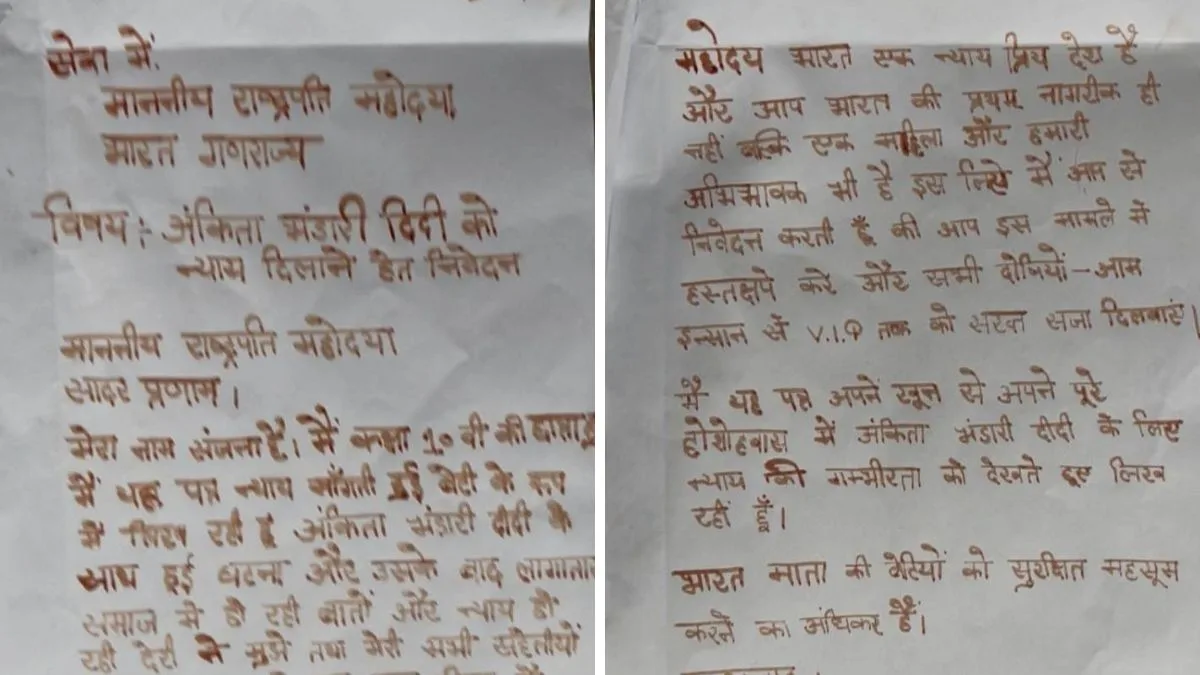 सेवा में.
माननीय राष्ट्रपति महोदया
भारत गणराज्य
विषय :- अंकिता भंडारी दिदी को
न्याय दिलाने हेत निवेदन
माननीय राष्ट्रपति महोदया
सादर प्रणाम।
मेरा नाम संजना है। मैं कक्षा 10 वी की
मैं यह पत्र न्याय माँगती हुई बेटी के रूप
में लिख रही हूं अंकिता भंडारी दीदी के
साथ हुई घटना और उसके बाद लागातार
समाज में हो रही बातों और न्याय हो
रही देरी ने मुझे तथा मेरी सभी सहेलीयों
महोदय भारत एक न्याय प्रिय देश है
और आप भारत की प्रथम नागरीक ही
नहीं बल्कि एक महिला और हमारी
अभिभावक भी है इस लिये मैं आप से
निवेदन करती हूँ की आप इस मामले में
हस्तक्षपे करे और सभी दोषियों - आम
इन्सान से V.I.P तक को सख्त सजा दिलवाएं।
मैं यह पत्र अपने खून से अपने पूरे
होशोहवास में अंकिता भंडारी दीदी के लिए
न्याय की गम्भीरता को देखते हुए लिख
रही हूँ।
भारत माता की बेटियों को सुरक्षित महसूस
करने का अधिकर हैं।